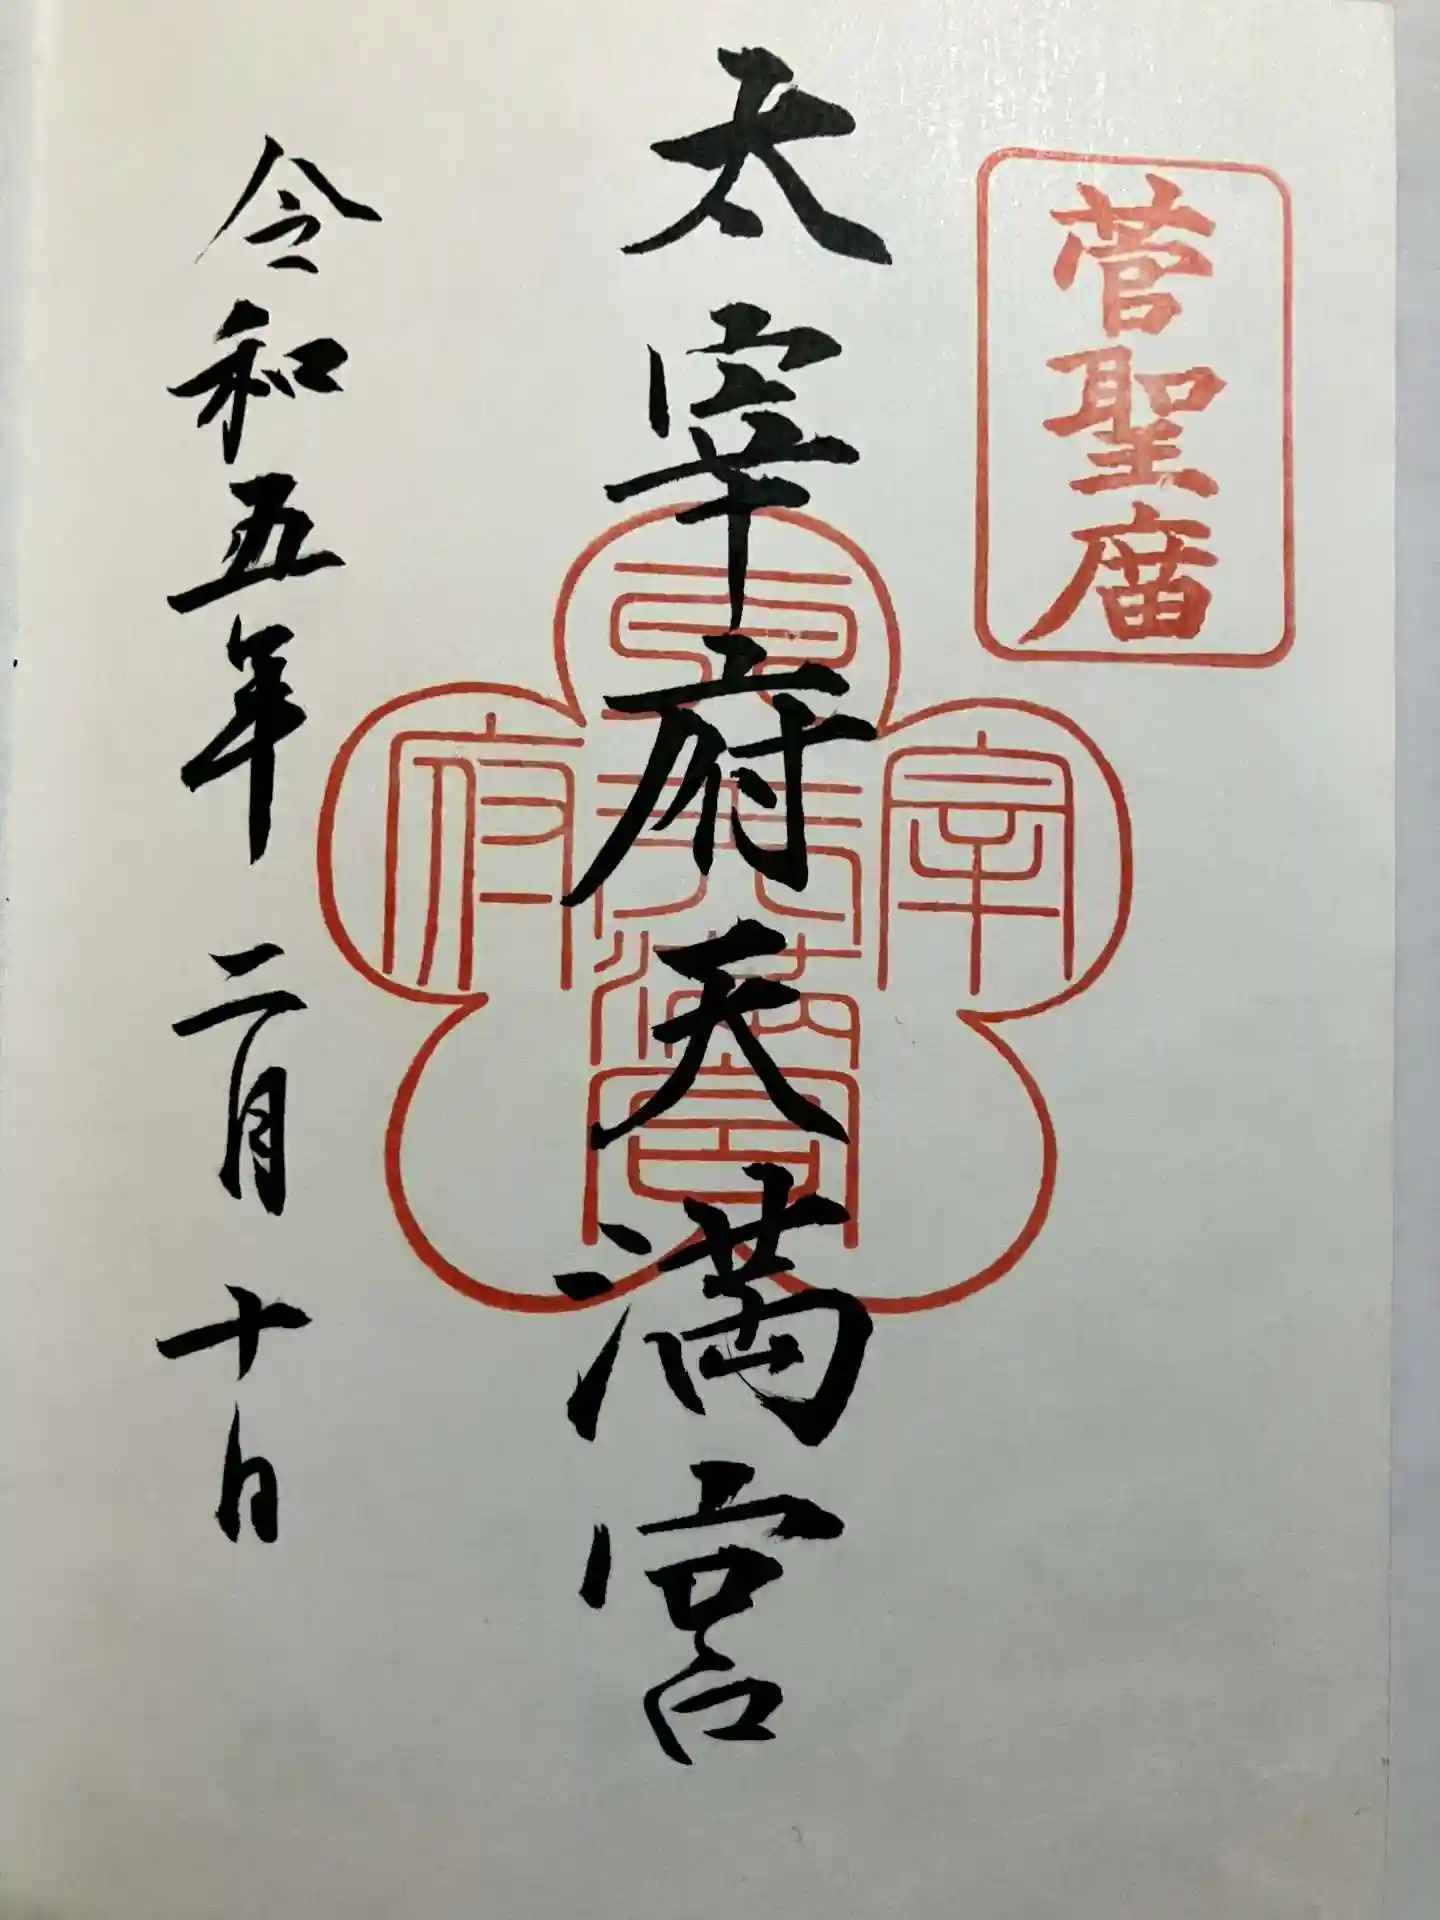 菅聖庿
太宰府天満宮
令和五年二月十日
宰
府
天満宮